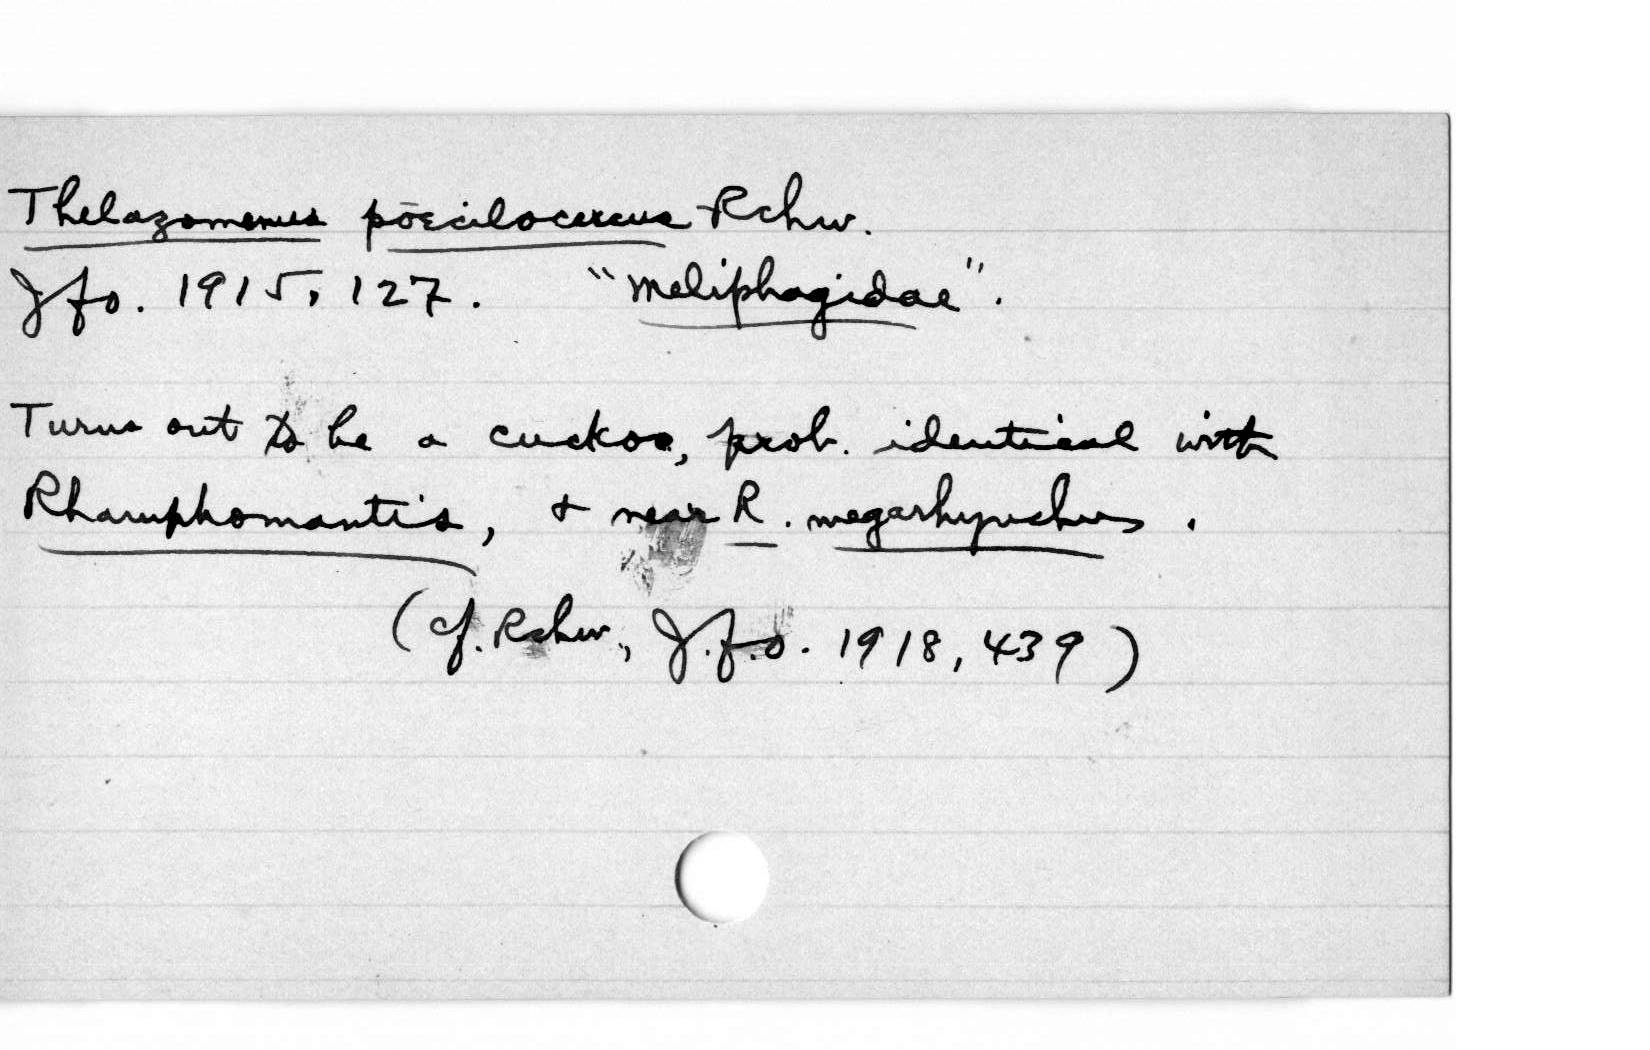 Thelazomenus poecilocercus Rchw.
Jfo. 1915, 127. "Meliphagidae".
Turns out to be a cuckoo, prob. identical with
Rhamphomantis, & near R. megarhynchus.
(cf. Rchw., J.f.o. 1918, 439)